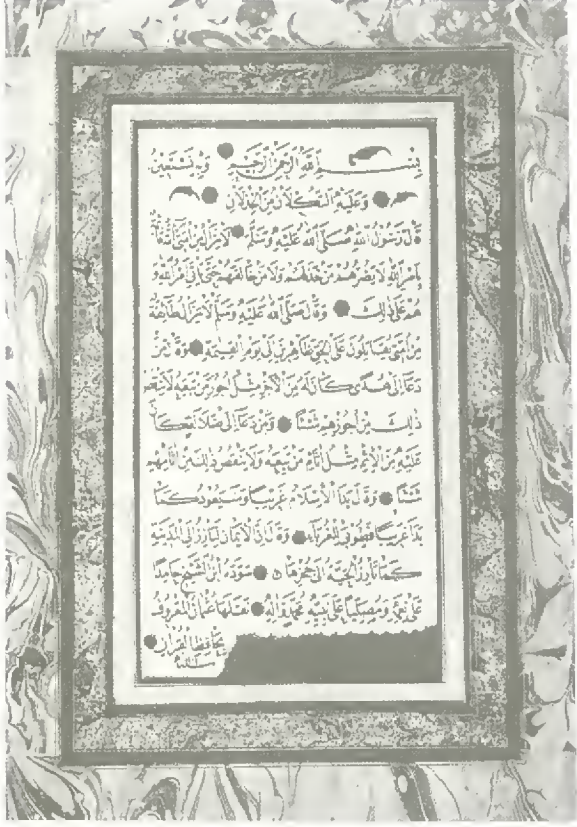 بِسْمِ اللهِ الرَّحْمٰنِ الرَّحِيمِ وَبِهِ نَسْتَعِينُ
وَعَلَيْهِ التُّكْلَانُ مِنَ الْخِذْلَانِ
قَالَ رَسُولُ اللهِ صَلَّى اللهُ عَلَيْهِ وَسَلَّمَ لَا يَزَالُ مِنْ أُمَّتِي أُمَّةٌ
بِأَمْرِ اللهِ لَا يَضُرُّهُمْ مَنْ خَذَلَهُمْ وَلَا مَنْ خَالَفَهُمْ حَتَّى يَأْتِيَ أَمْرُ اللهِ وَ
هُمْ عَلَى ذٰلِكَ وَقَالَ صَلَّى اللهُ عَلَيْهِ وَسَلَّمَ لَا يَزَالُ طَائِفَةٌ
مِنْ أُمَّتِي يُقَاتِلُونَ عَلَى الْحَقِّ ظَاهِرِينَ إِلَى يَوْمِ الْقِيٰمَةِ وَقَالَ مَنْ
دَعَا إِلَى هُدًى كَانَ لَهُ مِنَ الْأَجْرِ مِثْلُ أُجُورِ مَنْ تَبِعَهُ لَا يَنْقُصُ
ذٰلِكَ مِنْ أُجُورِهِمْ شَيْئًا وَمَنْ دَعَا إِلَى ضَلَالَةٍ كَانَ
عَلَيْهِ مِنَ الْإِثْمِ مِثْلُ آثَامِ مَنْ تَبِعَهُ وَلَا يَنْقُصُ ذٰلِكَ مِنْ آثَامِهِمْ
شَيْئًا وَقَالَ بَدَأَ الْإِسْلَامُ غَرِيبًا وَسَيَعُودُ كَمَا
بَدَأَ غَرِيبًا فَطُوبَى لِلْغُرَبَاءِ وَقَالَ إِنَّ الْإِيمَانَ لَيَأْرِزُ إِلَى الْمَدِينَةِ
كَمَا تَأْرِزُ الْحَيَّةُ إِلَى جُحْرِهَا سَوَّدَهُ ابْنُ الشَّيْخِ حَامِدًا
عَلَى نِعَمِهِ وَمُصَلِّيًا عَلَى نَبِيِّهِ مُحَمَّدٍ وَآلِهِ نَقَلَهَا عُثْمَانُ الْمَعْرُوفُ
بِحَافِظِ الْقُرْآنِ